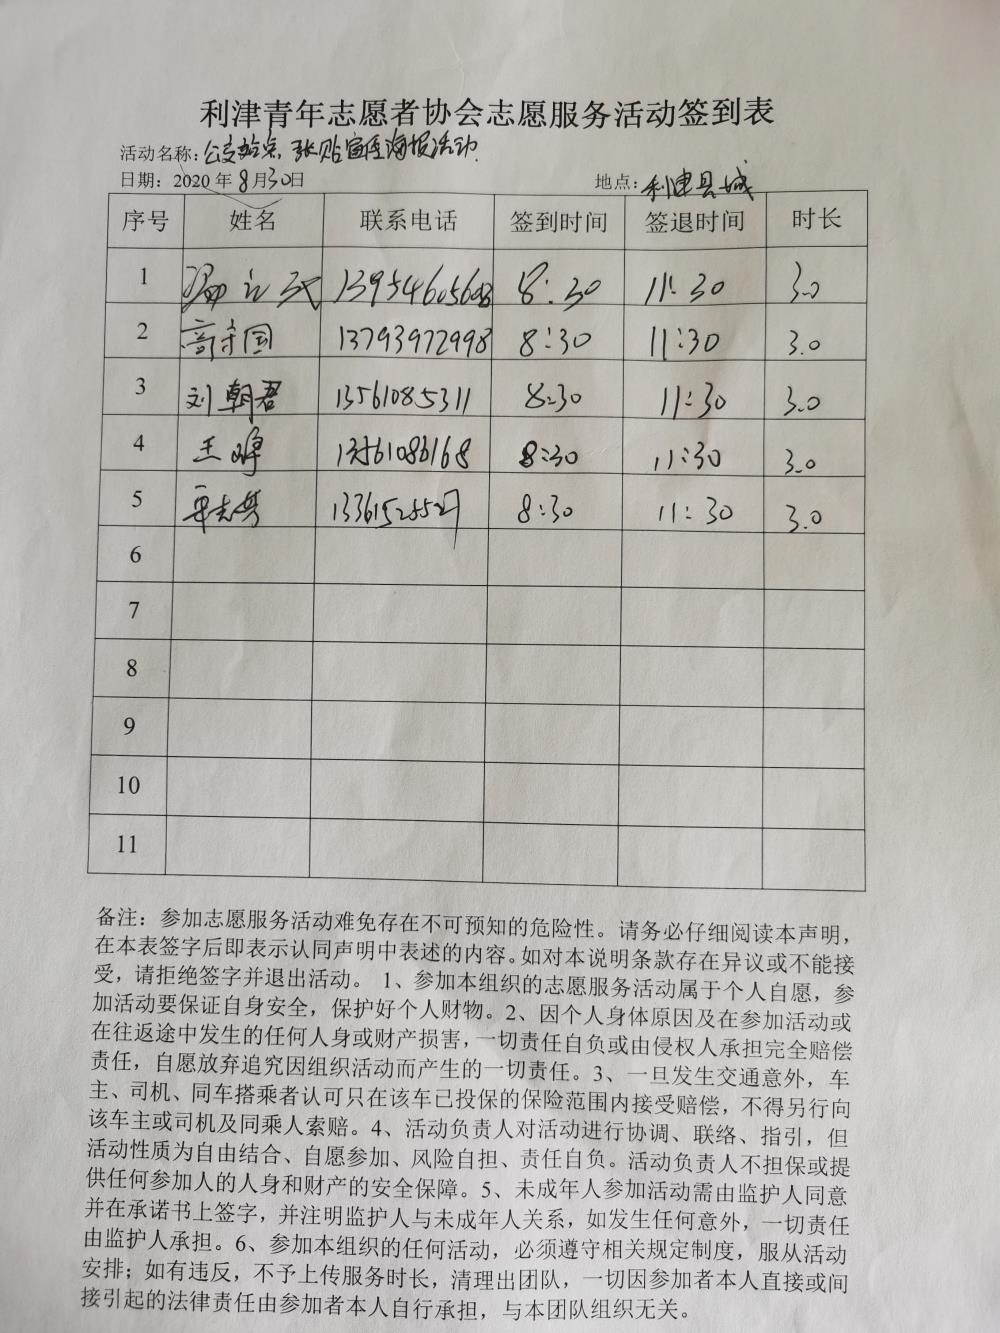 利津青年志愿者协会志愿服务活动签到表
活动名称：公交站点张贴宣传海报活动
日期：2020年8月30日 地点：利津县城
序号 姓名 联系电话 签到时间 签退时间 时长
1 8:30 11:30 3.0
2 高守国 13793972998 8:30 11:30 3.0
3 刘朝君 13561085311 8:30 11:30 3.0
4 王 8:30 11:30 3.0
5 8:30 11:30 3.0
6
7
8
9
10
11
备注：参加志愿服务活动难免存在不可预知的危险性。请务必仔细阅读本声明，
在本表签字后即表示认同声明中表述的内容。如对本说明条款存在异议或不能接
受，请拒绝签字并退出活动。 1、参加本组织的志愿服务活动属于个人自愿，参
加活动要保证自身安全，保护好个人财物。2、因个人身体原因及在参加活动或
在往返途中发生的任何人身或财产损害，一切责任自负或由侵权人承担完全赔偿
责任，自愿放弃追究因组织活动而产生的一切责任。3、一旦发生交通意外，车
主、司机、同车搭乘者认可只在该车已投保的保险范围内接受赔偿，不得另行向
该车主或司机及同乘人索赔。4、活动负责人对活动进行协调、联络、指引，但
活动性质为自由结合、自愿参加、风险自担、责任自负。活动负责人不担保或提
供任何参加人的人身和财产的安全保障。5、未成年人参加活动需由监护人同意
并在承诺书上签字，并注明监护人与未成年人关系，如发生任何意外，一切责任
由监护人承担。6、参加本组织的任何活动，必须遵守相关规定制度，服从活动
安排；如有违反，不予上传服务时长，清理出团队，一切因参加者本人直接或间
接引起的法律责任由参加者本人自行承担，与本团队组织无关。